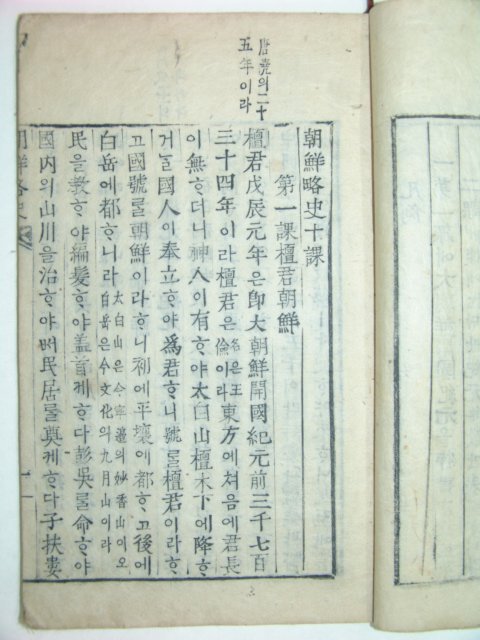 唐堯의二十
五年이라
朝鮮略史十課
第一課檀君朝鮮
檀君戊辰元年은即大朝鮮開國紀元前三千七百
三十四年이라檀君은名은王儉이라東方에쳐음에君長
이無ᄒᆞ더니神人이有ᄒᆞ야太白山檀木下에降ᄒᆞ
거ᄂᆞᆯ國人이奉立ᄒᆞ야爲君ᄒᆞ니號ᄅᆞᆯ檀君이라ᄒᆞ
고國號ᄅᆞᆯ朝鮮이라ᄒᆞ니初에平壤에都ᄒᆞ고後에
白岳에都ᄒᆞ니라太白山은今寧邊의妙香山이오
白岳은今文化의九月山이라
民을敎ᄒᆞ야編髮ᄒᆞ야盖首케ᄒᆞ다彭吳ᄅᆞᆯ命ᄒᆞ야
國內의山川을治ᄒᆞ야ᄡᅥ民居ᄅᆞᆯ奠케ᄒᆞ다子扶婁
朝鮮略史
一
凡例